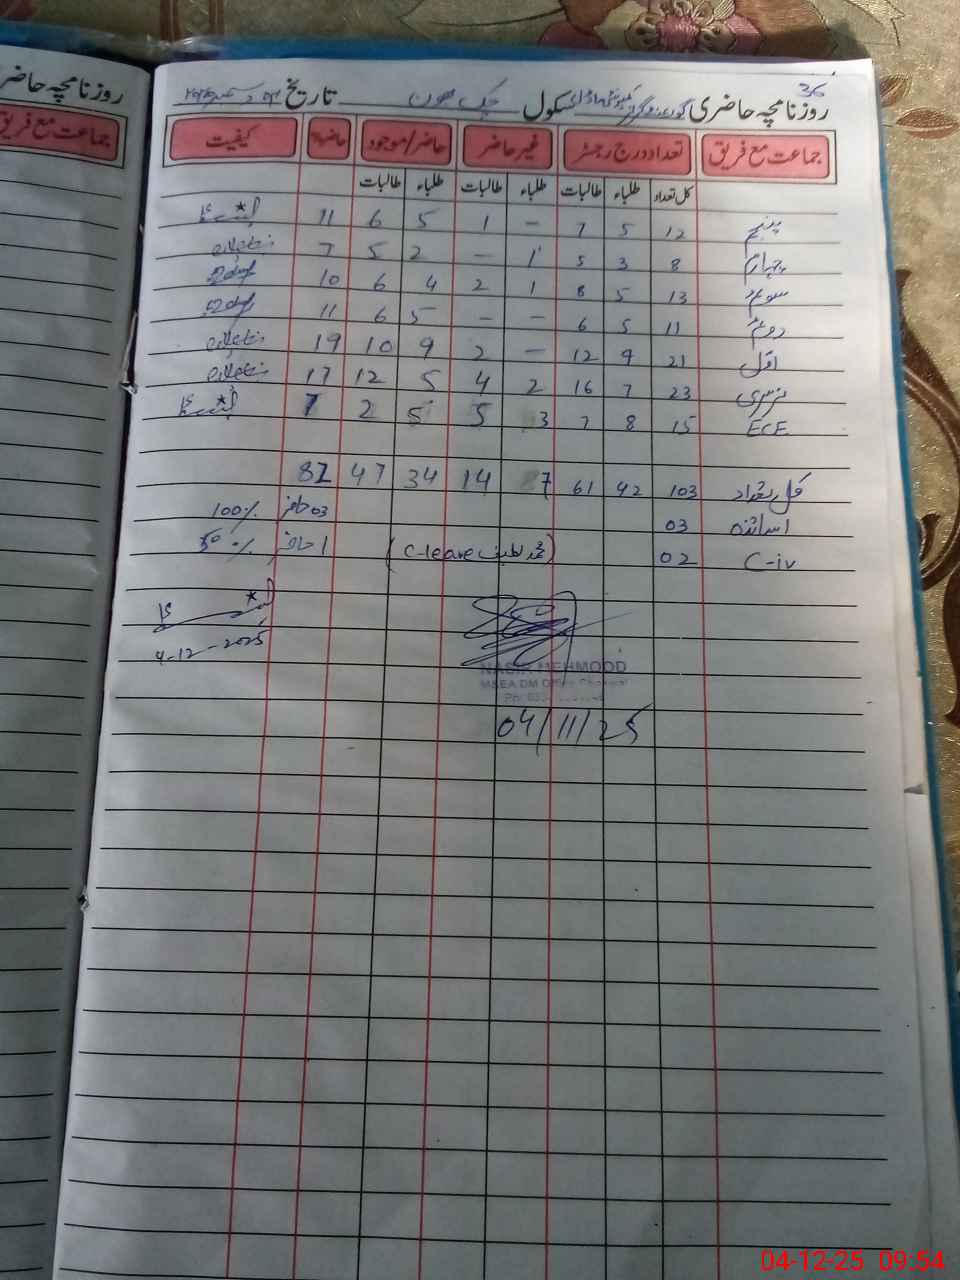 36
روزنامچہ حاضری گورنمنٹ گرلز کمیونٹی ماڈل سکول چک ھون تاریخ
روزنامچہ حاضر
جماعت مع فریق
جماعت مع فریق تعداد درج رجسٹر غیر حاضر حاضر/موجود حاضر% کیفیت
کل تعداد طلباء طالبات طلباء طالبات طلباء طالبات
پنجم 12 5 7 – 1 5 6 11
چہارم 8 3 5 1 – 2 5 7
سوئم 13 5 8 1 2 4 6 10
دوئم 11 5 6 – – 5 6 11
اول 21 9 12 – 2 9 10 19
نرسری 23 7 16 2 4 5 12 17
ECE 15 8 7 3 5 5 2 7
کل تعداد 103 42 61 7 14 34 47 82
اساتذہ 03 03 حاضر 100%
C-iv 02 (محمد لطیف C-leave) 1 حاضر 50%
4-12-2025
NASIR MEHMOOD
MSEA DM Office Chakwal
04/11/25
04-12-25 09:54